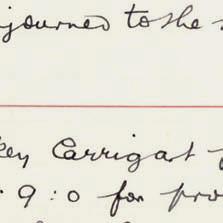 journed to the
key Carrigart
9:0 for pro